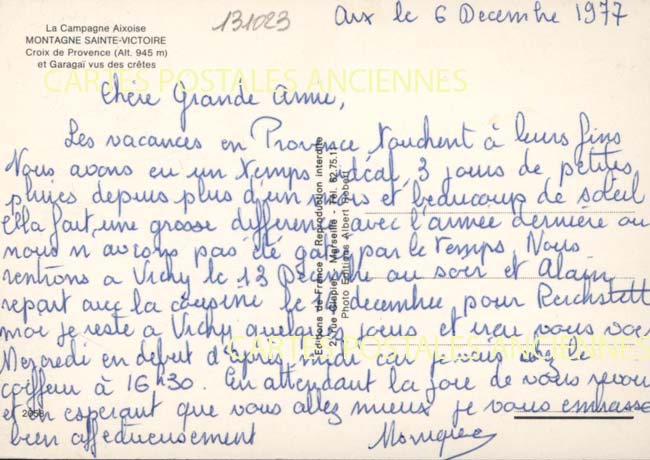 La Campagne Aixoise
MONTAGNE SAINTE-VICTOIRE
Croix de Provence (Alt. 945 m)
et Garagaï vus des crêtes
131023
Aix le 6 Decembre 1977
CARTES POSTALES ANCIENNES
Chère Grande Amie,
Les vacances en Provence touchent à leurs fins
Nous avons eu un temps idéal, 3 jours de petites
pluies depuis plus d'un mois et beaucoup de soleil
Ella fait une grosse difference avec l'année dernière ou
nous n'avions pas été gatés par le temps Nous
rentrons a Vichy le 13 Décembre au soir et Alain
repart avec la cousine le decembre pour Reichstett
moi je reste a Vichy quelques jours et irai vous voir
Mercredi en début d'après midi car j'ai chez le
coiffeur à 16h30. En attendant la joie de vous revoir
et en esperant que vous allez mieux je vous embrasse
bien affectueusement Monique
Editions de France - Reproduction interdite
Marseille - Tél. 62.75.11
Photo Editions Albert Robert
CARTES POSTALES ANCIENNES